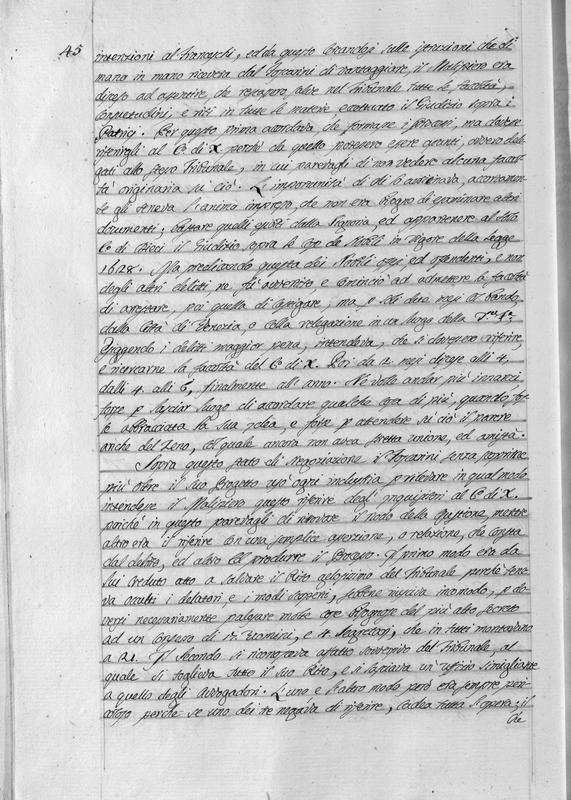 45
intenzioni al Franceschi, ed da questo Consiglj sulle istruzioni che di
mano in mano riceveva dal Foscarini di vantaggiare, il Malipiero era
diretto ad asserire, che restassero salve nel Tribunale tutte le facoltà,
Consuetudini, e riti in tutte le materie, eccettuato il Giudizio sopra i
Patrizj. Per questo prima accordava che formasse i processi, ma dovesse
riferirgli al C.o di X perchè da quello potessero essere assunti, ovvero dele-
gati allo stesso Tribunale, in cui pareagli di non vedere alcuna facol-
tà originaria su ciò. L'importunità di chi lo avvicinava, accortamen-
te gli teneva l'animo impresso, che non era bisogno di esaminare altri
documenti; bastare quelli esistenti dalla Signoria, ed appartenere al solo
C.o di Dieci il Giudizio sopra le cose de Nobili in vigore della Legge
1628. Ma predicando questa dei Nobili offesi, ed offendenti, e non
degli altri delitti ne fu avvertito e cominciò ad admettere la facoltà
di arrestare, poi quella di castigare, ma p. soli due mesi di bando
dalla Città di Venezia, o colla relegazione in un luogo della Terra f.a
Esiggendo i delitti maggior pena, intendeva, che si dovessero riferire,
e ricercarne la facoltà del C.o di X. Poi da 2 mesi discese alli 4,
dalli 4 alli 6, finalmente all'anno. Nè volle andar più innanzi
forse p. lasciar luogo di accordare qualche cosa di più, quando fos-
se abbracciata la sua idea, e forse p. attendere su ciò il parere
anche del Zeno, col quale ancora non avea stretta unione, ed amistà.
Sopra questo stato di Negoziazione il Foscarini senza scoprire
più oltre il suo Progetto usò ogni industria p. rilevare in qual modo
intendesse il Malipiero questo riferire degl'Inquisitori al C.o di X.
poichè in questo pareagli di ritrovare il nodo della Questione mentre
altro era il riferire con una semplice asserzione, o relazione, che consta
dal delitto, ed altro il produrre il Processo. Il primo modo era da
lui creduto atto a salvare il Rito gelosissimo del Tribunale perchè tene-
va occulti i delatori, e i modi scoperti, sebbene riusciva incomodo, p. do-
versi necessariamente palesare molte cose bisognose del più alto secreto
ad un Consesso di 17 Uomini, e 4 Segretarj, che in tutti montavano
a 21. Il secondo si riconosceva affatto sovversivo del Tribunale, al
quale si toglieva tutto il suo Rito, e si lasciava un uffizio simigliante
a quello degli Avvogadori. L'uno e l'altro modo però era sempre peri-
coloso perchè se uno dei tre negava di riferire, cadea tutta l'opera; il